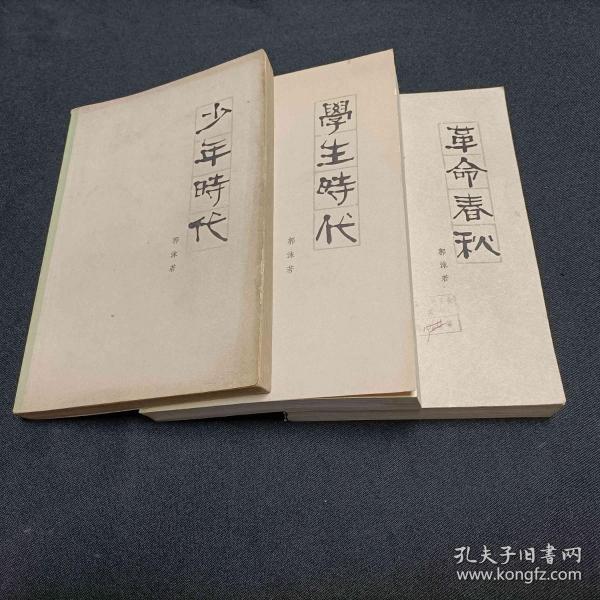 少年時代
郭沫若
學生時代
郭沫若
革命春秋
郭沫若
孔夫子旧書网
www.kongfz.com